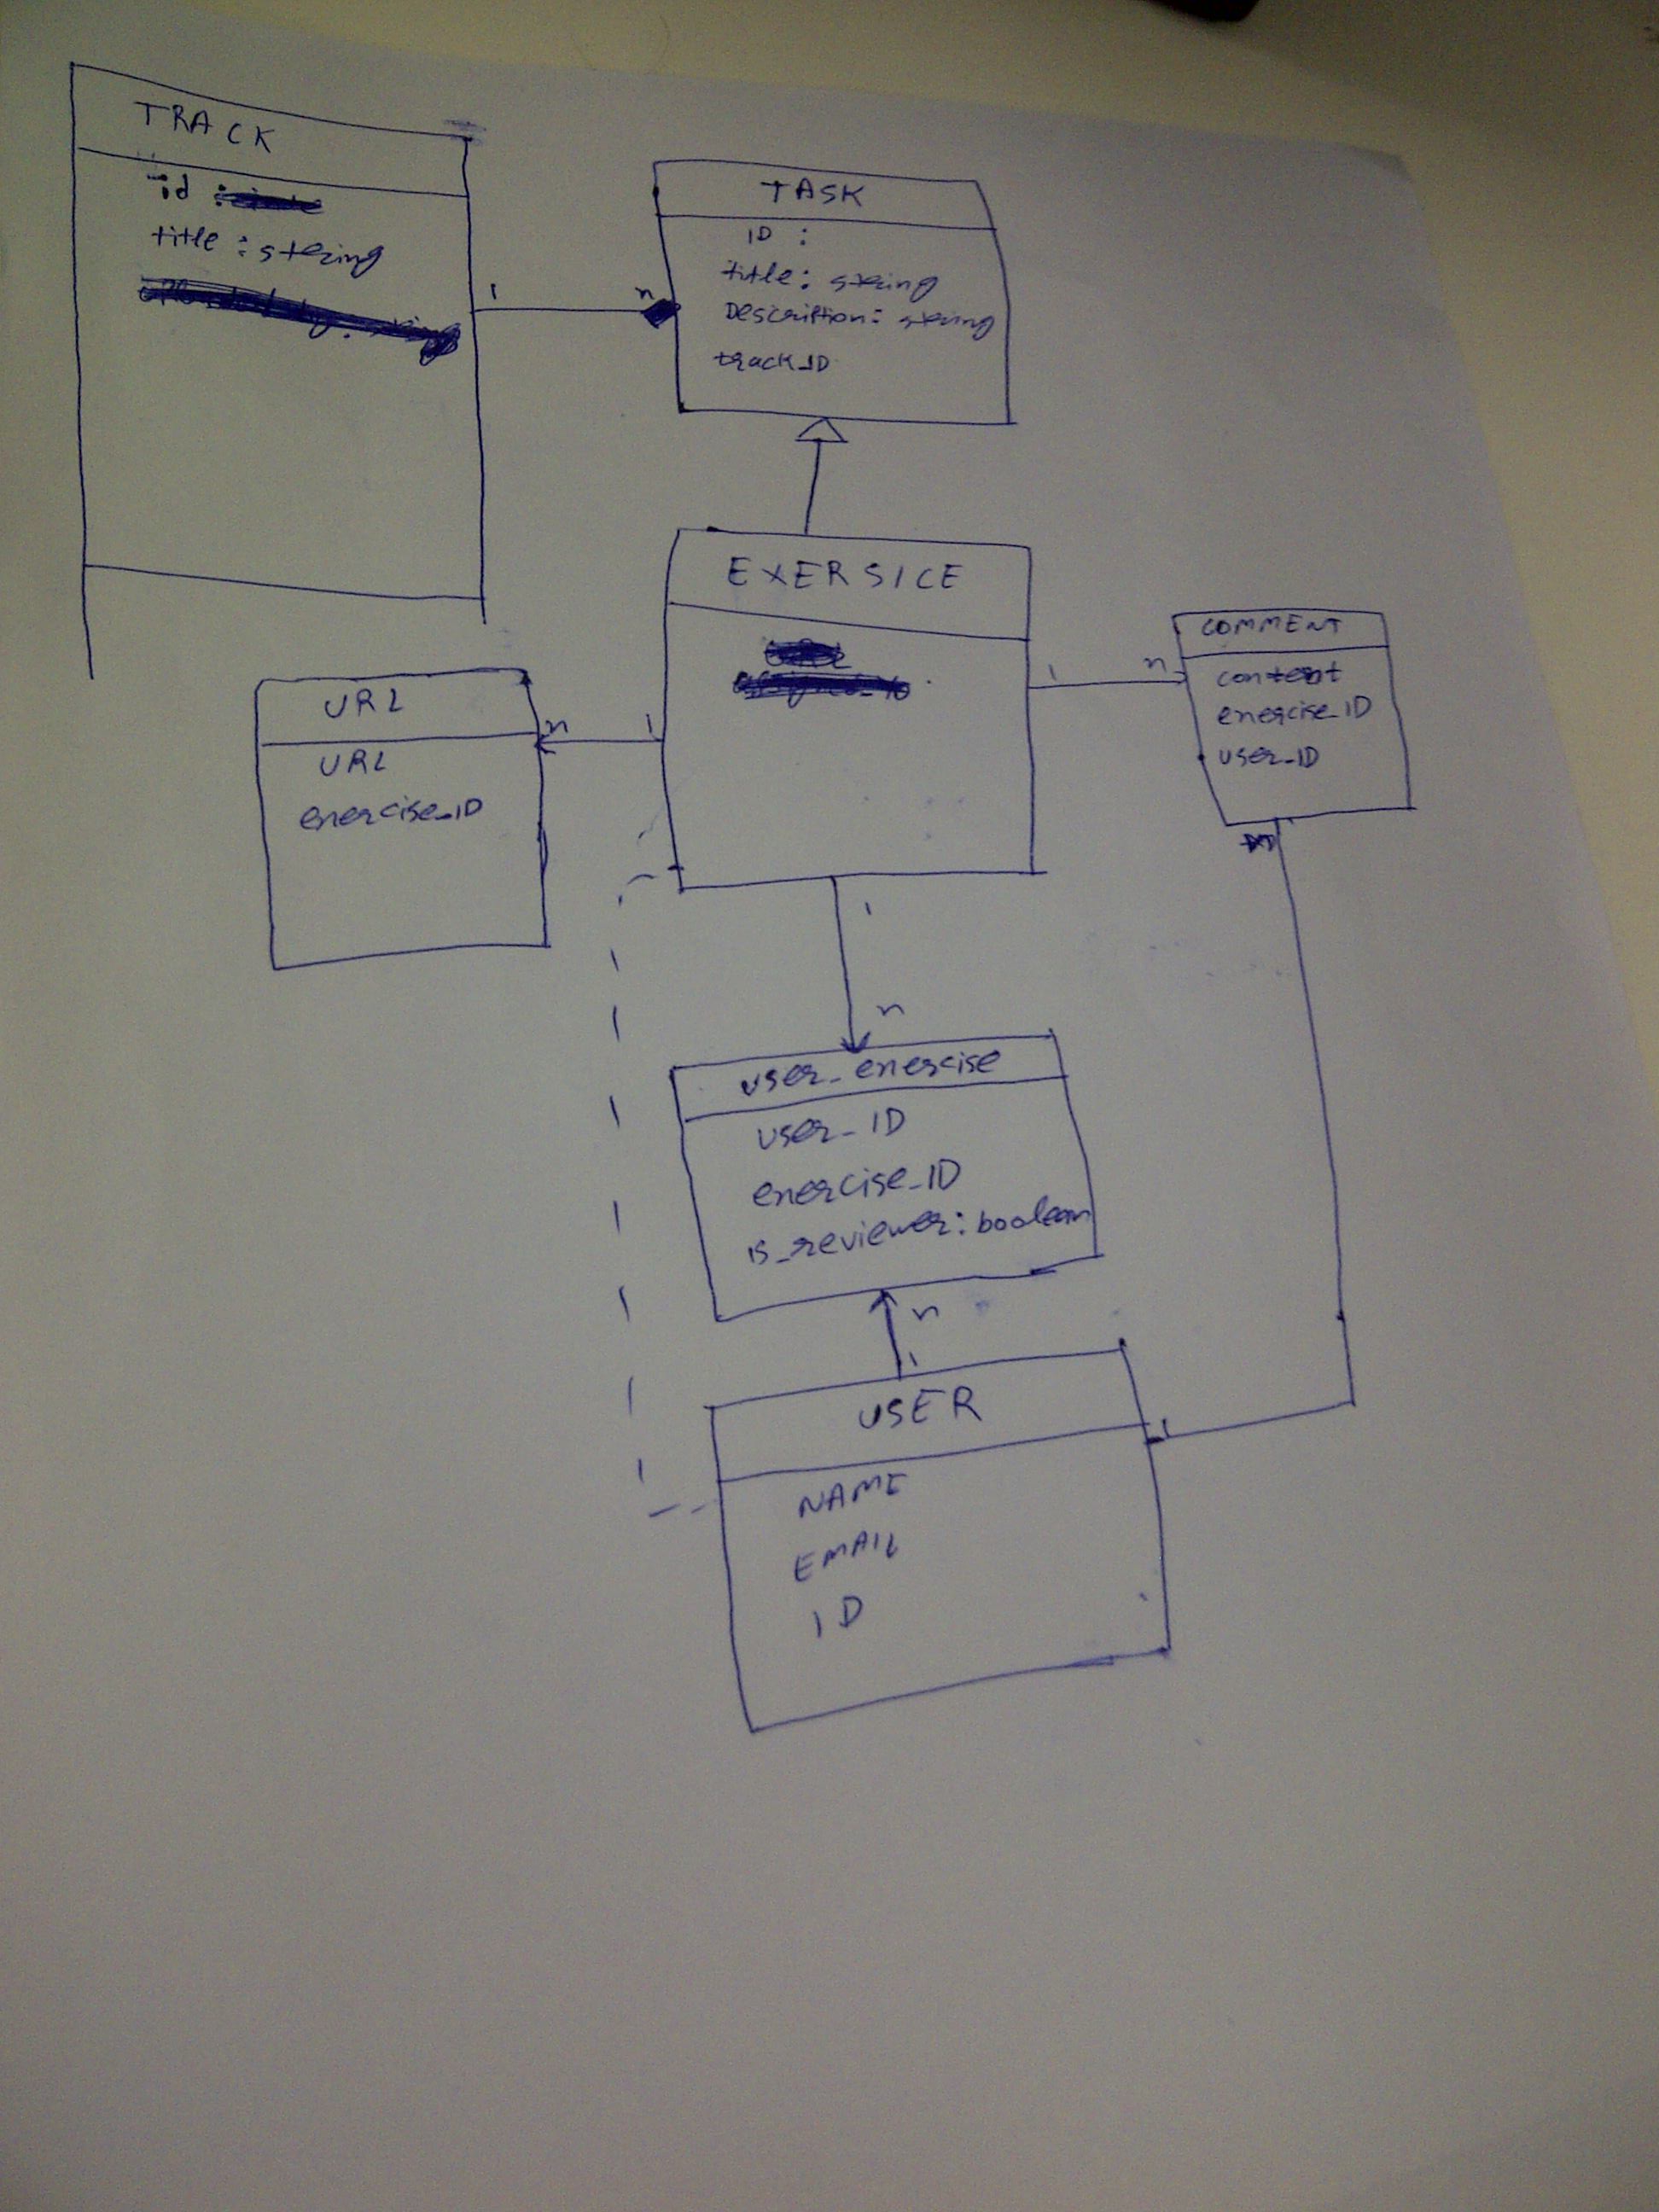 TRACK
id :
title : string
1
n
TASK
ID :
title : string
Description : string
track_ID
EXERSICE
1
n
COMMENT
content
exercise_ID
user_ID
n
1
URL
URL
exercise_ID
1
n
user_exercise
user_ID
exercise_ID
is_reviewer : boolean
n
1
USER
1
NAME
EMAIL
ID